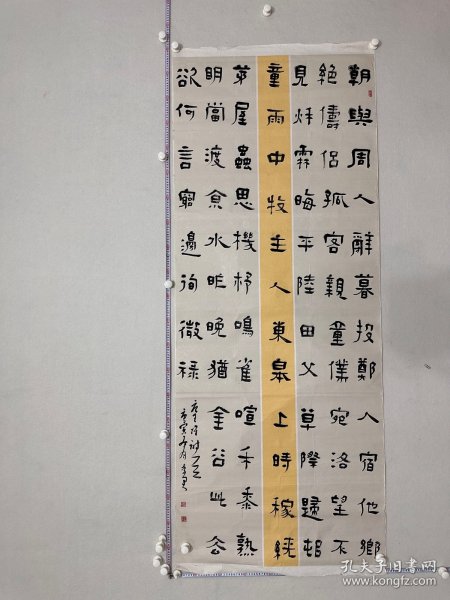 朝與周人辭暮投鄭人宿他鄉
絶儔侶孤客親童僕宛洛望不
見秌霖晦平陸田父草際歸邨
童雨中牧主人東皋上時稼繞
茅屋蟲思機杼鳴雀喧禾黍熟
明當渡京水昨晚猶金谷此去
欲何言窮邊徇微祿
庚寅
孔夫子旧书网